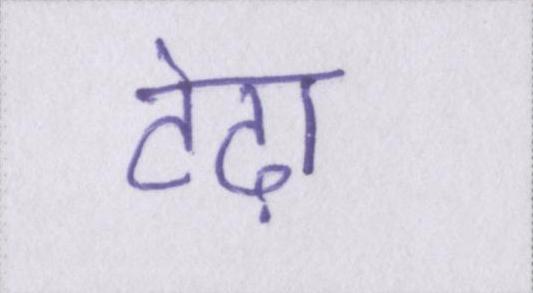 टेढ़ा